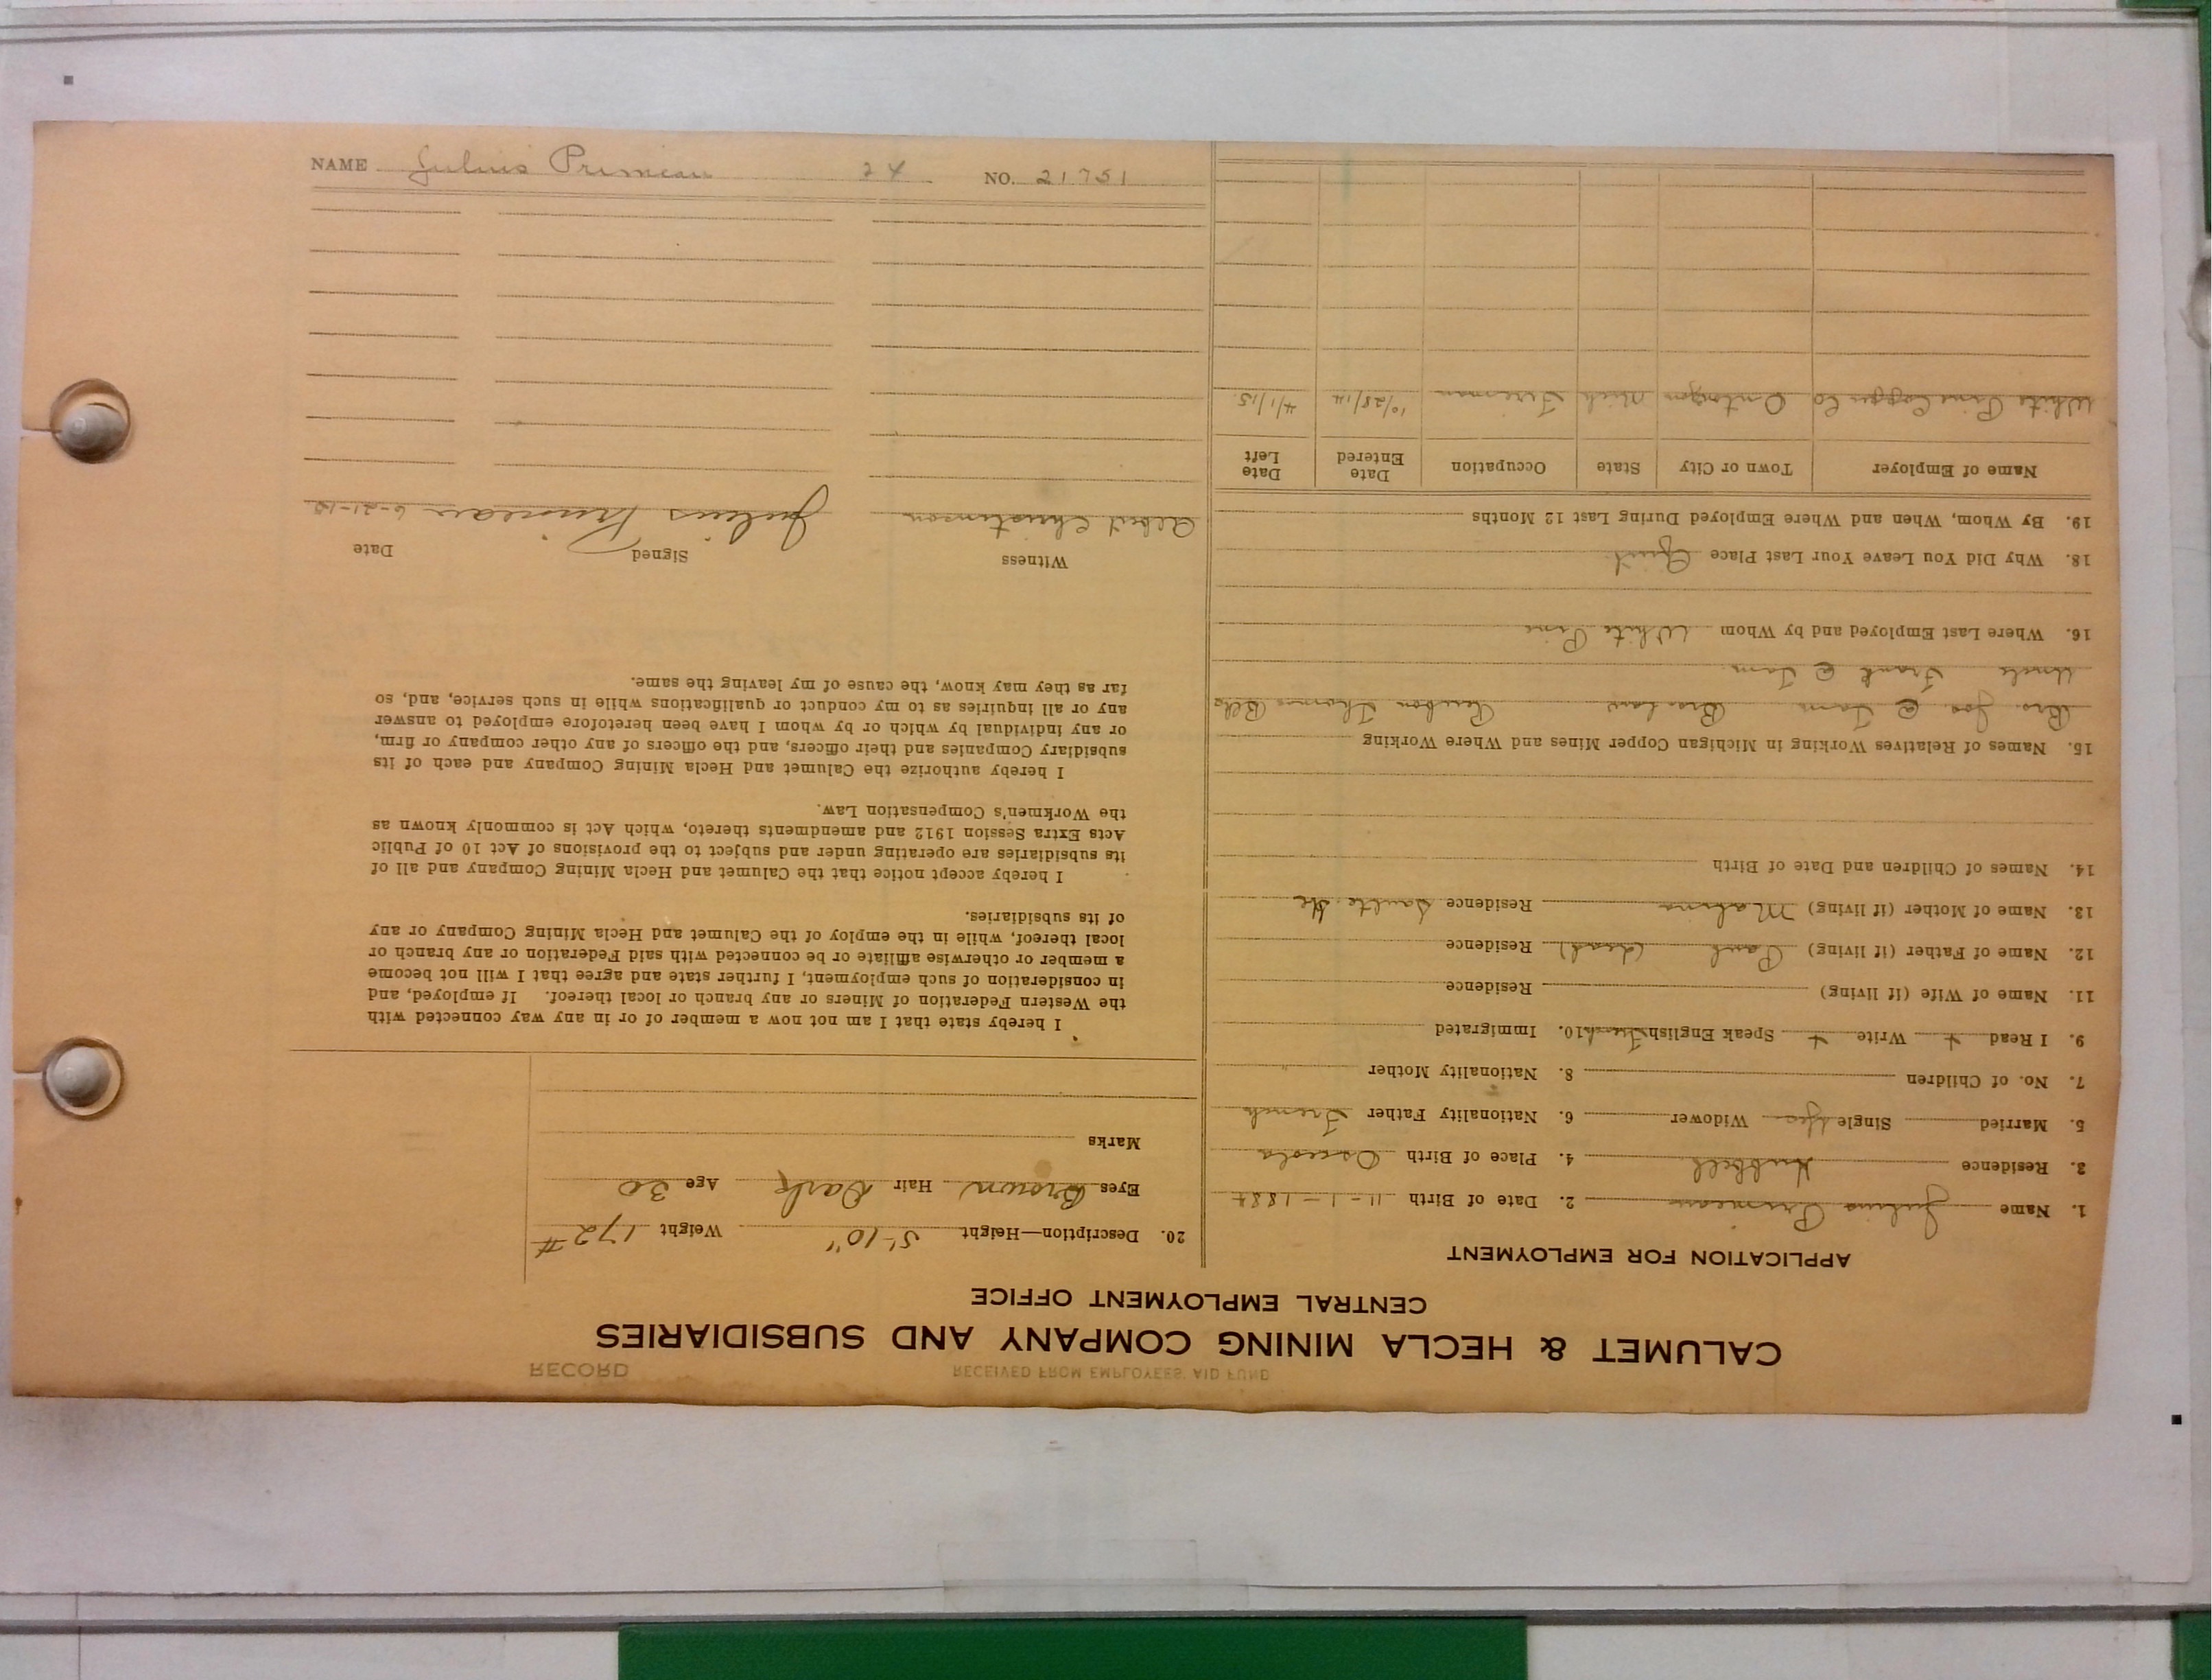 RECORD
RECEIVED FROM EMPLOYEES' AID FUND
CALUMET & HECLA MINING COMPANY AND SUBSIDIARIES
CENTRAL EMPLOYMENT OFFICE
APPLICATION FOR EMPLOYMENT
1. Name Julius Primeau 2. Date of Birth 11-1-1884
3. Residence Hubbell 4. Place of Birth Osceola
5. Married Single Yes Widower 6. Nationality Father French
7. No. of Children 8. Nationality Mother
9. I Read + Write + Speak English French 10. Immigrated
11. Name of Wife (if living) Residence
12. Name of Father (if living) Paul (dead) Residence
13. Name of Mother (if living) Residence Saulte. Ste
14. Names of Children and Date of Birth
15. Names of Relatives Working in Michigan Copper Mines and Where Working
Bro. Jos. @ Tam Reuben Thomas
Uncle Frank @ Tam
16. Where Last Employed and by Whom White Pine
18. Why Did You Leave Your Last Place Quit
19. By Whom, When and Where Employed During Last 12 Months
Name of Employer Town or City State Occupation Date Entered Date Left
White Pine Copper Co Ontongon Mich Fireman 10/28/14 4/1/15
20. Description—Height 5'-10" Weight 172 #
Eyes Brown Hair Dark Age 30
Marks
I hereby state that I am not now a member of or in any way connected with
the Western Federation of Miners or any branch or local thereof. If employed, and
in consideration of such employment, I further state and agree that I will not become
a member or otherwise affiliate or be connected with said Federation or any branch or
local thereof, while in the employ of the Calumet and Hecla Mining Company or any
of its subsidiaries.
I hereby accept notice that the Calumet and Hecla Mining Company and all of
its subsidiaries are operating under and subject to the provisions of Act 10 of Public
Acts Extra Session 1912 and amendments thereto, which Act is commonly known as
the Workmen's Compensation Law.
I hereby authorize the Calumet and Hecla Mining Company and each of its
subsidiary Companies and their officers, and the officers of any other company or firm,
or any individual by which or by whom I have been heretofore employed to answer
any or all inquiries as to my conduct or qualifications while in such service, and, so
far as they may know, the cause of my leaving the same.
Witness Signed Date
Albert Christinson Julius Primeau 6-21-15
NAME Julius Primeau 24 NO. 21751